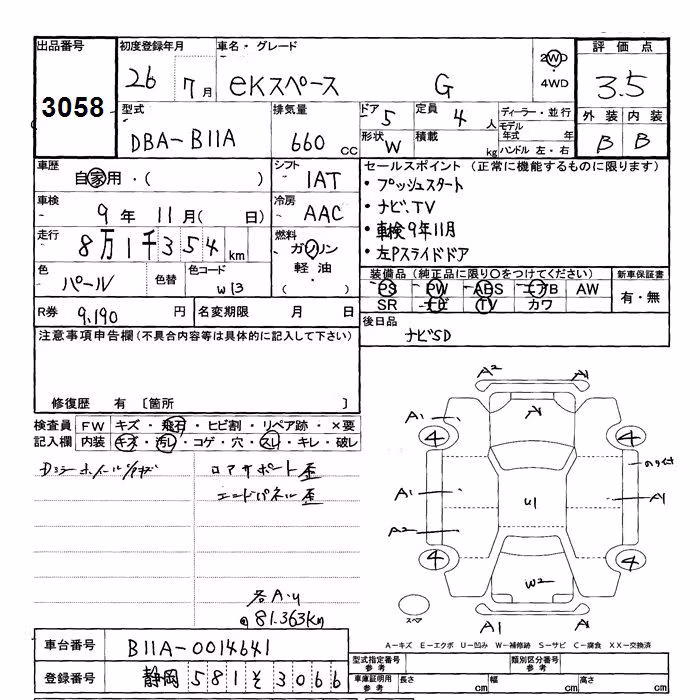 出品番号 初度登録年月 車名・グレード 2WD 評価点
3058 26 7月 eKスペース G 4WD 3.5
型式 排気量 ドア 5 定員 4 人 ディーラー・並行 外装 内装
DBA-B11A 660 CC 形状 W 積載 kg モデル年式 年 B B
ハンドル 左・右
車歴 シフト セールスポイント (正常に機能するものに限ります)
自家用・( ) IAT ・プッシュスタート
車検 冷房 ・ナビ、TV
9年 11月( 日) AAC ・車検9年11月
走行 燃料 ・左Pスライドドア
8万1千354km ガソリン
軽油
( )
色 色替 色コード 装備品 (純正品に限り○をつけてください) 新車保証書
パール W13 PS PW ABS エアB AW 有・無
SR ナビ TV カワ
R券 9,190 円 名変期限 月 日 後日品
ナビSD
注意事項申告欄(不具合内容等は具体的に記入して下さい)
修復歴 有 〔箇所 〕
検査員 FW キズ・飛石・ヒビ割・リペア跡・×要
記入欄 内装 キズ・汚レ・コゲ・穴・スレ・キレ・破レ
ロアサポート歪
エンドパネル歪
各A・U
81,363Km
A2 A1
A1 A1
4 4
A1 U1 A1
A2
4 4
W2
スペア A1 A
A-キズ E-エクボ U-凹み W-補修跡 S-サビ C-腐食 XX-交換済
車台番号 B11A-0014641
登録番号 静岡 581 そ 3066
型式指定番号 参考 類別区分番号 参考
車庫証明用 参考 長さ cm 幅 cm 高さ cm